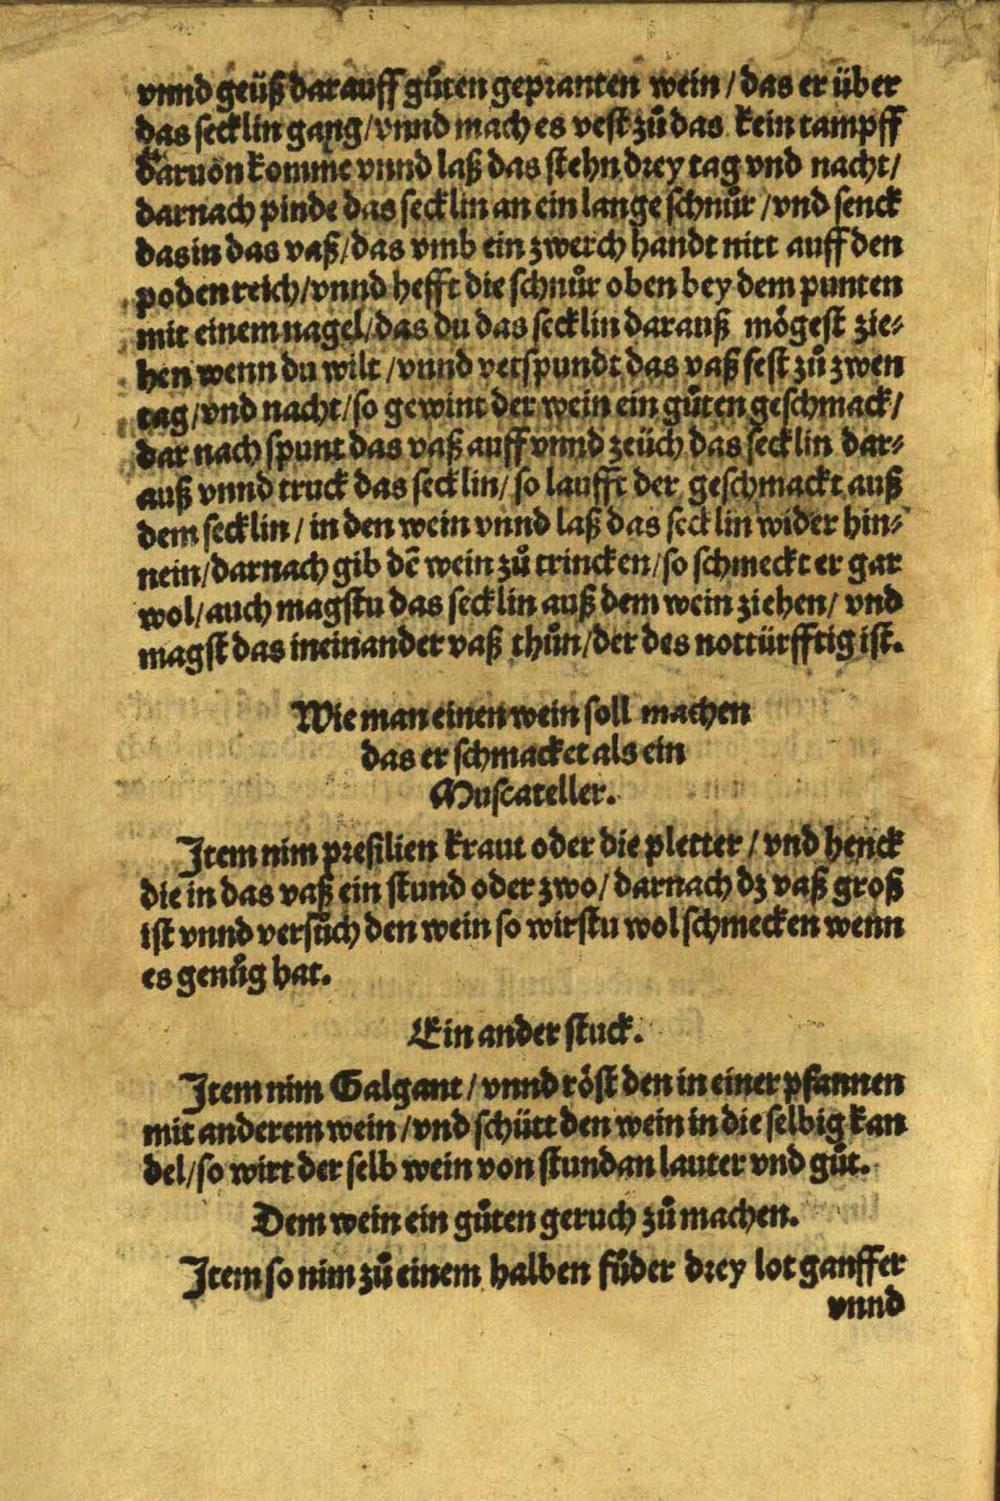 vnnd geüß darauff gůten gepranten wein / das er über
das secklin gang / vnnd mach es vest zů das kein tampff
daruon komme vnnd laß das stehn drey tag vnd nacht /
darnach pinde das secklin an ein lange schnůr / vnd senck
das in das vaß / das vmb ein zwerch handt nitt auff den
poden reich / vnnd hefft die schnůr oben bey dem punten
mit einem nagel / das du das secklin darauß mögest zie⸗
hen wenn du wilt / vnnd verspundt das vaß fest zů zwen
tag / vnd nacht / so gewint der wein ein gůten geschmack /
dar nach spunt das vaß auff vnnd zeüch das secklin dar⸗
auß vnnd truck das secklin / so laufft der geschmackt auß
dem secklin / in den wein vnnd laß das secklin wider hin⸗
nein / darnach gib dē wein zů trincken / so schmeckt er gar
wol / auch magstu das secklin auß dem wein ziehen / vnd
magst das in einander vaß thůn / der des nottürfftig ist.
Wie man einen wein soll machen
das er schmacket als ein
Muscateller.
Item nim presilien kraut oder die pletter / vnd henck
die in das vaß ein stund oder zwo / darnach dz vaß groß
ist vnnd versůch den wein so wirstu wol schmecken wenn
es genůg hat.
Ein ander stuck.
Item nim Galgant / vnnd röst den in einer pfannen
mit anderem wein / vnd schütt den wein in die selbig kan
del / so wirt der selb wein von stundan lauter vnd gůt.
Dem wein ein gůten geruch zů machen.
Item so nim zů einem halben fůder drey lot ganffer
vnnd